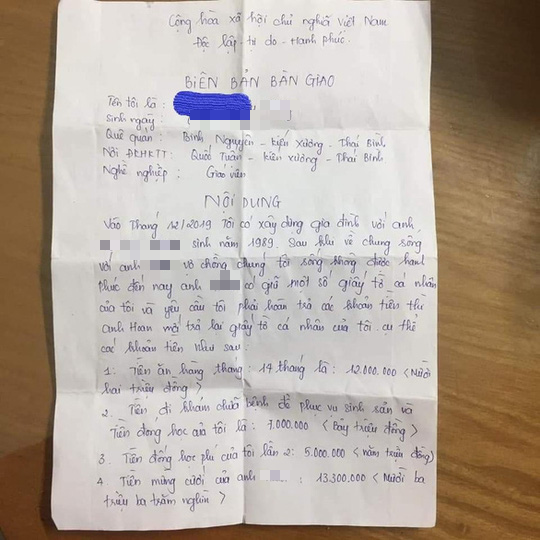 Cộng hòa xã hội chủ nghĩa Việt Nam
Độc lập - tự do - Hạnh phúc.
BIÊN BẢN BÀN GIAO
Tên tôi là :
sinh ngày :
Quê quán : Bình Nguyên - Kiến Xương - Thái Bình
Nơi ĐKHKTT: Quốc Tuấn - Kiến Xương - Thái Bình
Nghề nghiệp : Giáo viên
NỘI DUNG
Vào Tháng 12/2019 Tôi có xây dựng gia đình với anh
sinh năm 1989. Sau khi về chung sống
với anh vợ chồng chúng tôi sống không được hạnh
phúc đến nay anh có giữ một số giấy tờ cá nhân
của tôi và yêu cầu tôi phải hoàn trả các khoản tiền thì
anh Hoan mới trả lại giấy tờ cá nhân của tôi cụ thể
các khoản tiền như sau:
1: Tiền ăn hàng tháng: 14 tháng là: 12.000.000 < Mười
hai triệu đồng >
2. Tiền đi khám chữa bệnh để phục vụ sinh sản và
Tiền đóng học của tôi là: 7.000.000 < Bảy triệu đồng >
3. Tiền đóng học phí của tôi lần 2: 5.000.000 < năm triệu đồng >
4. Tiền mừng cưới của anh : 13.300.000 < Mười ba
triệu ba trăm nghìn >